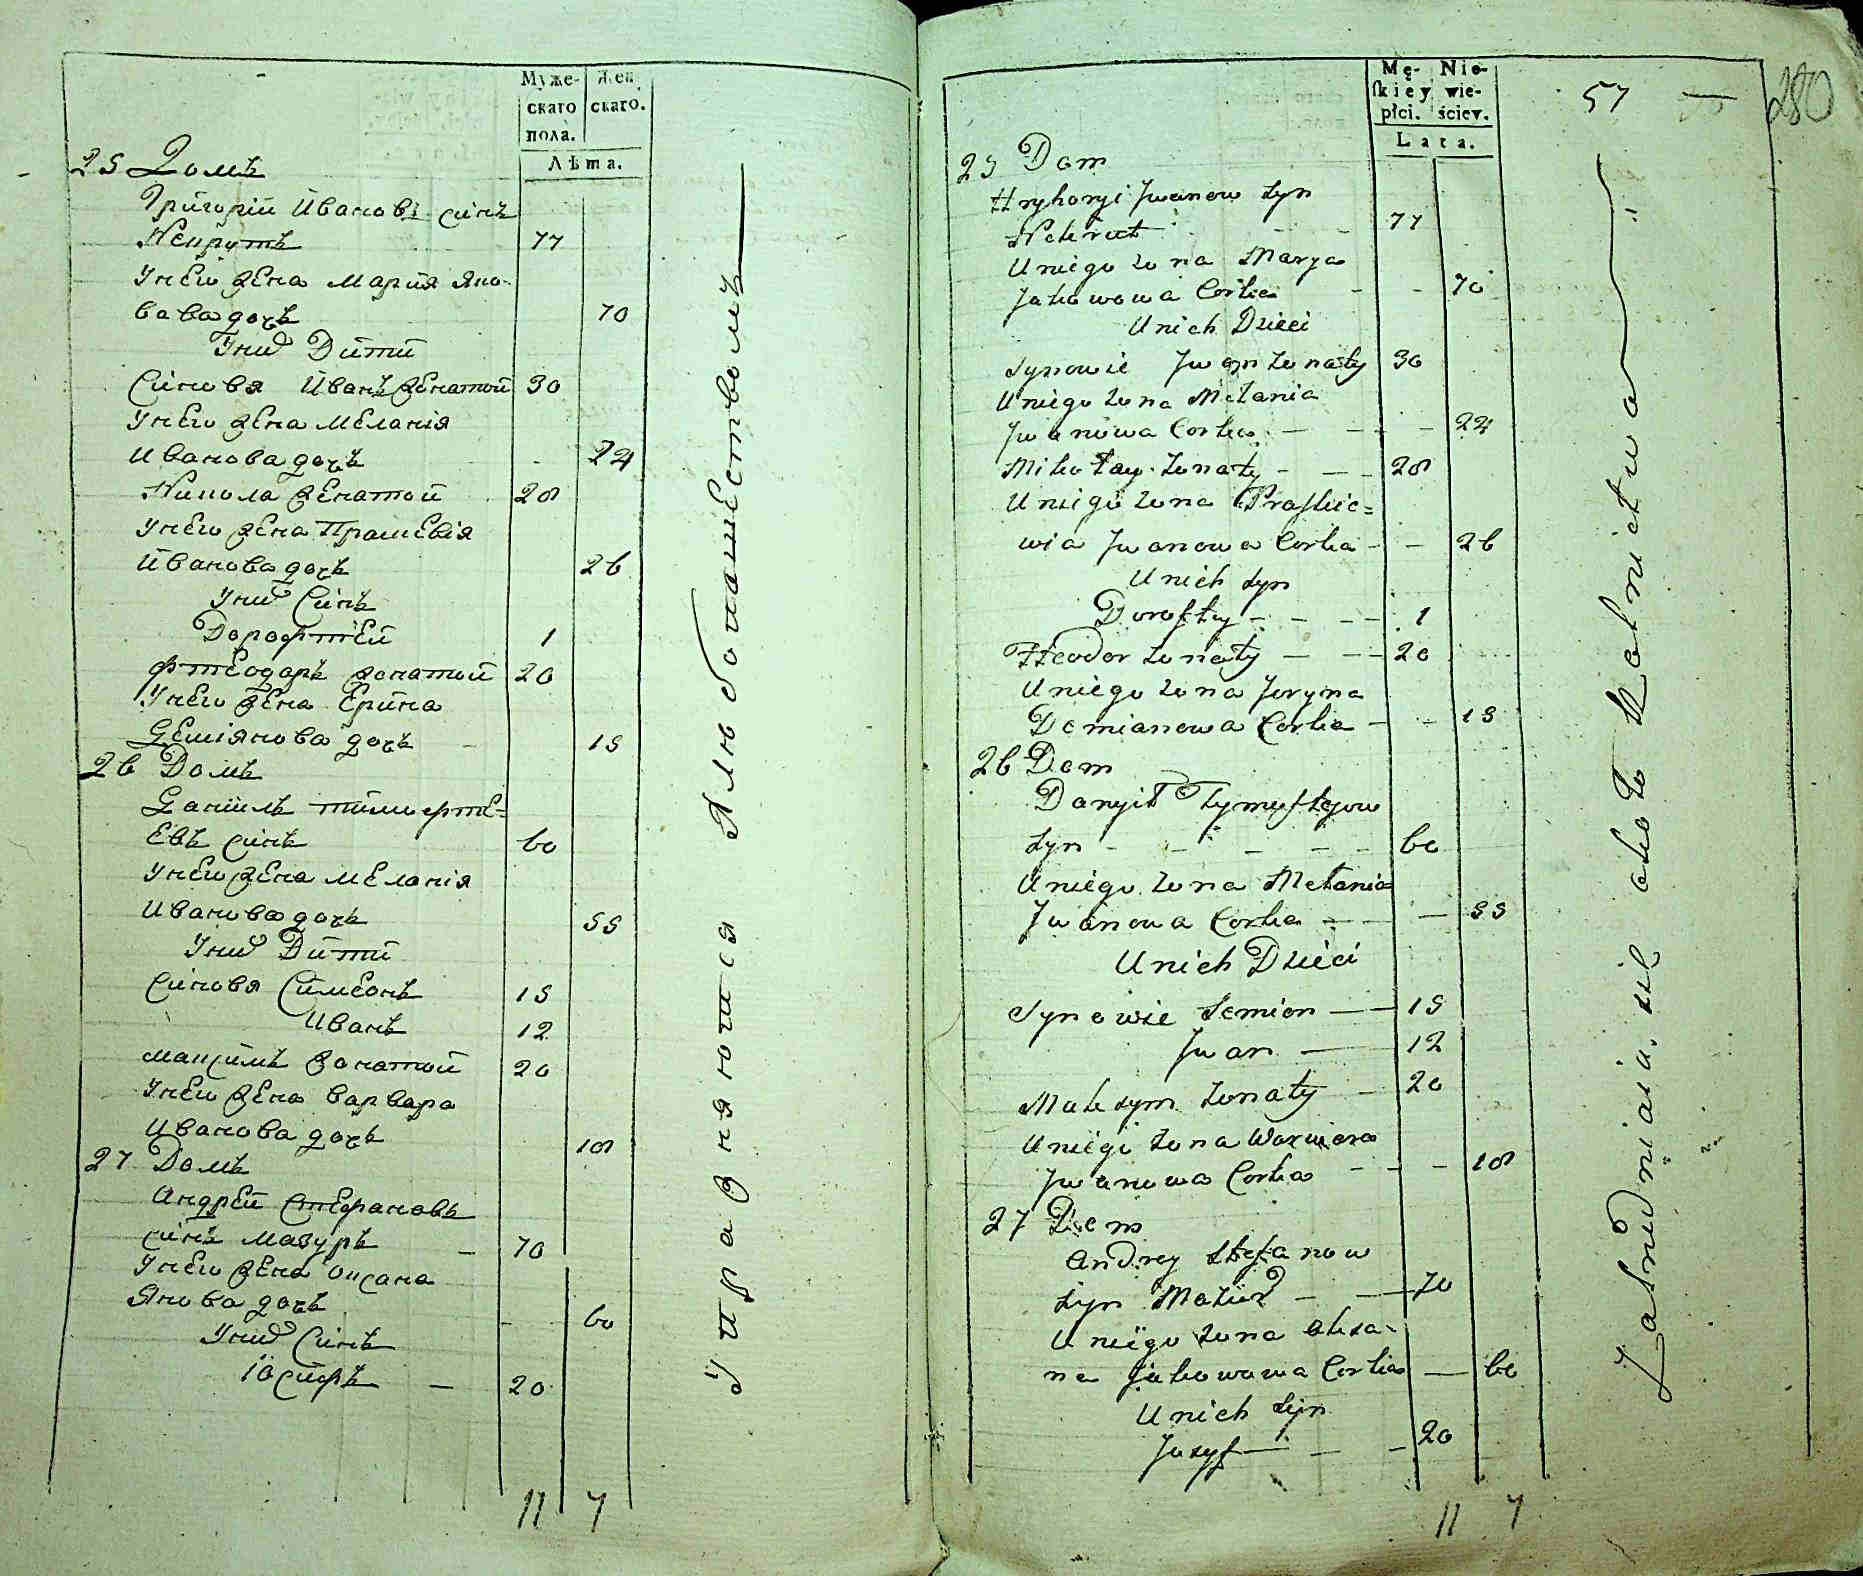 Муже-
скаго
пола.
Жен
скаго.
Лѣта.
25 Домъ
Григорій Ивановъ синъ
Некрутъ 77
Унего жена Марія Яко-
вова дочъ 70
Унихъ Дити
Синовя Иванъ женатой 30
Унего жена Меланія
Иванова дочъ 24
Никола женатой 28
Унего жена Праскевія
Иванова дочъ 26
Унихъ Синъ
Дорофтей 1
Фтеодаръ жонатой 20
Унего жена Ерина
Демянова дочъ 19
26 Домъ
Даниилъ тимофте-
евъ синъ 60
Унего жена Меланія
Иванова дочъ 55
Унихъ Дити
Синовя Симеонъ 15
Иванъ 12
Максимъ жонатой 20
Унего жена варвара
Иванова дочъ 18
27 Домъ
Андрей Стефановъ
синъ Мазуръ 70
Унего жена Оксана
Якова дочъ 60
Унихъ Синъ
Іосифъ 20
11 7
Упражняются хлебопашествомъ
Mę-
skiey
płci.
Nie-
wie-
ściey.
Lata.
57
280
25 Dom
Hryhoryi Jwanow Syn
Nekrut 77
Uniego żona Marya
Jakowowa Corka 70
Unich Dzieci
Synowie Jwan żonaty 30
Uniego żona Mełania
Jwanowa Corka 24
Mikołay żonaty 28
Uniego żona Praskie=
wia Jwanowa Corka 26
Unich Syn
Doroftey 1
Fteodor żonaty 20
Uniego żona Jeryna
Demianowa Corka 19
26 Dom
Danyił Tymoftejow
Syn 60
Uniego żona Mełania
Jwanowa Corka 55
Unich Dzieci
Synowie Semion 15
Jwan 12
Maksym żonaty 20
Uniego żona Warwara
Jwanowa Corka 18
27 Dom
Andrey Stefanow
Syn Mazur 70
Uniego żona Oksa-
na Jakowowa Corka 60
Unich Syn
Josyf 20
11 7
Zatrudniaią się około Rolnictwa